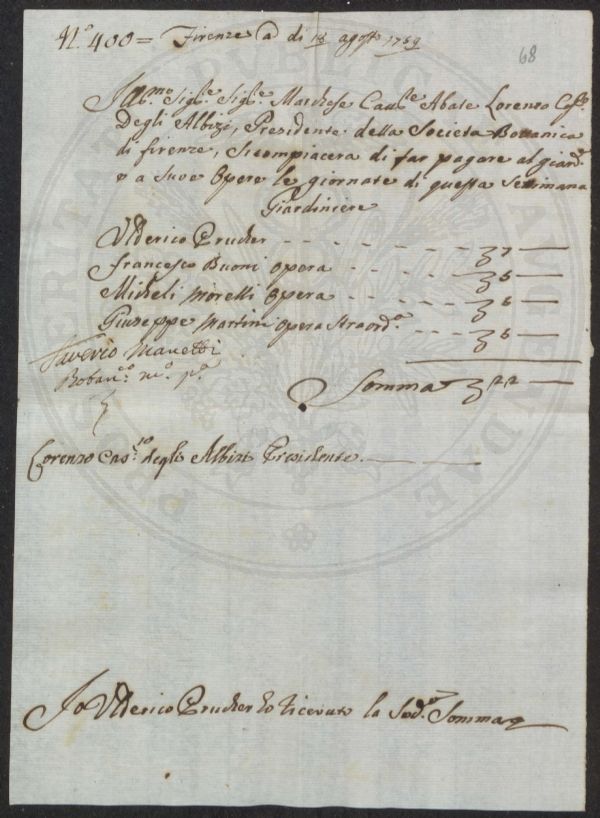 N.º 400 = Firenze a dì 18 agosto 1759
68
Sig.re Sig.re Marchese Cau.re Abate Lorenzo
Degli Albizi, Presidente della Societa Bottanica
di firenze, Si compiacera di far pagare al giard.e
e a Sue Opere le giornate di questa Settimana
Giardiniere
Ulderico Prucher - - - - - - - - 7 —
Francesco Buoni opera - - - - 5 —
Micheli Morelli Opera - - - - 5 —
Giuseppe Martini opera Straord.a - - 5 —
Saverio Manetti
m.o p.o
Somma 22 —
Lorenzo Cas.io degli Albizi Presidente
Io Ulderico Prucher ho ricevuto la Sud.a Somma
PROSPERITATI PUBLICAE AUGENDAE